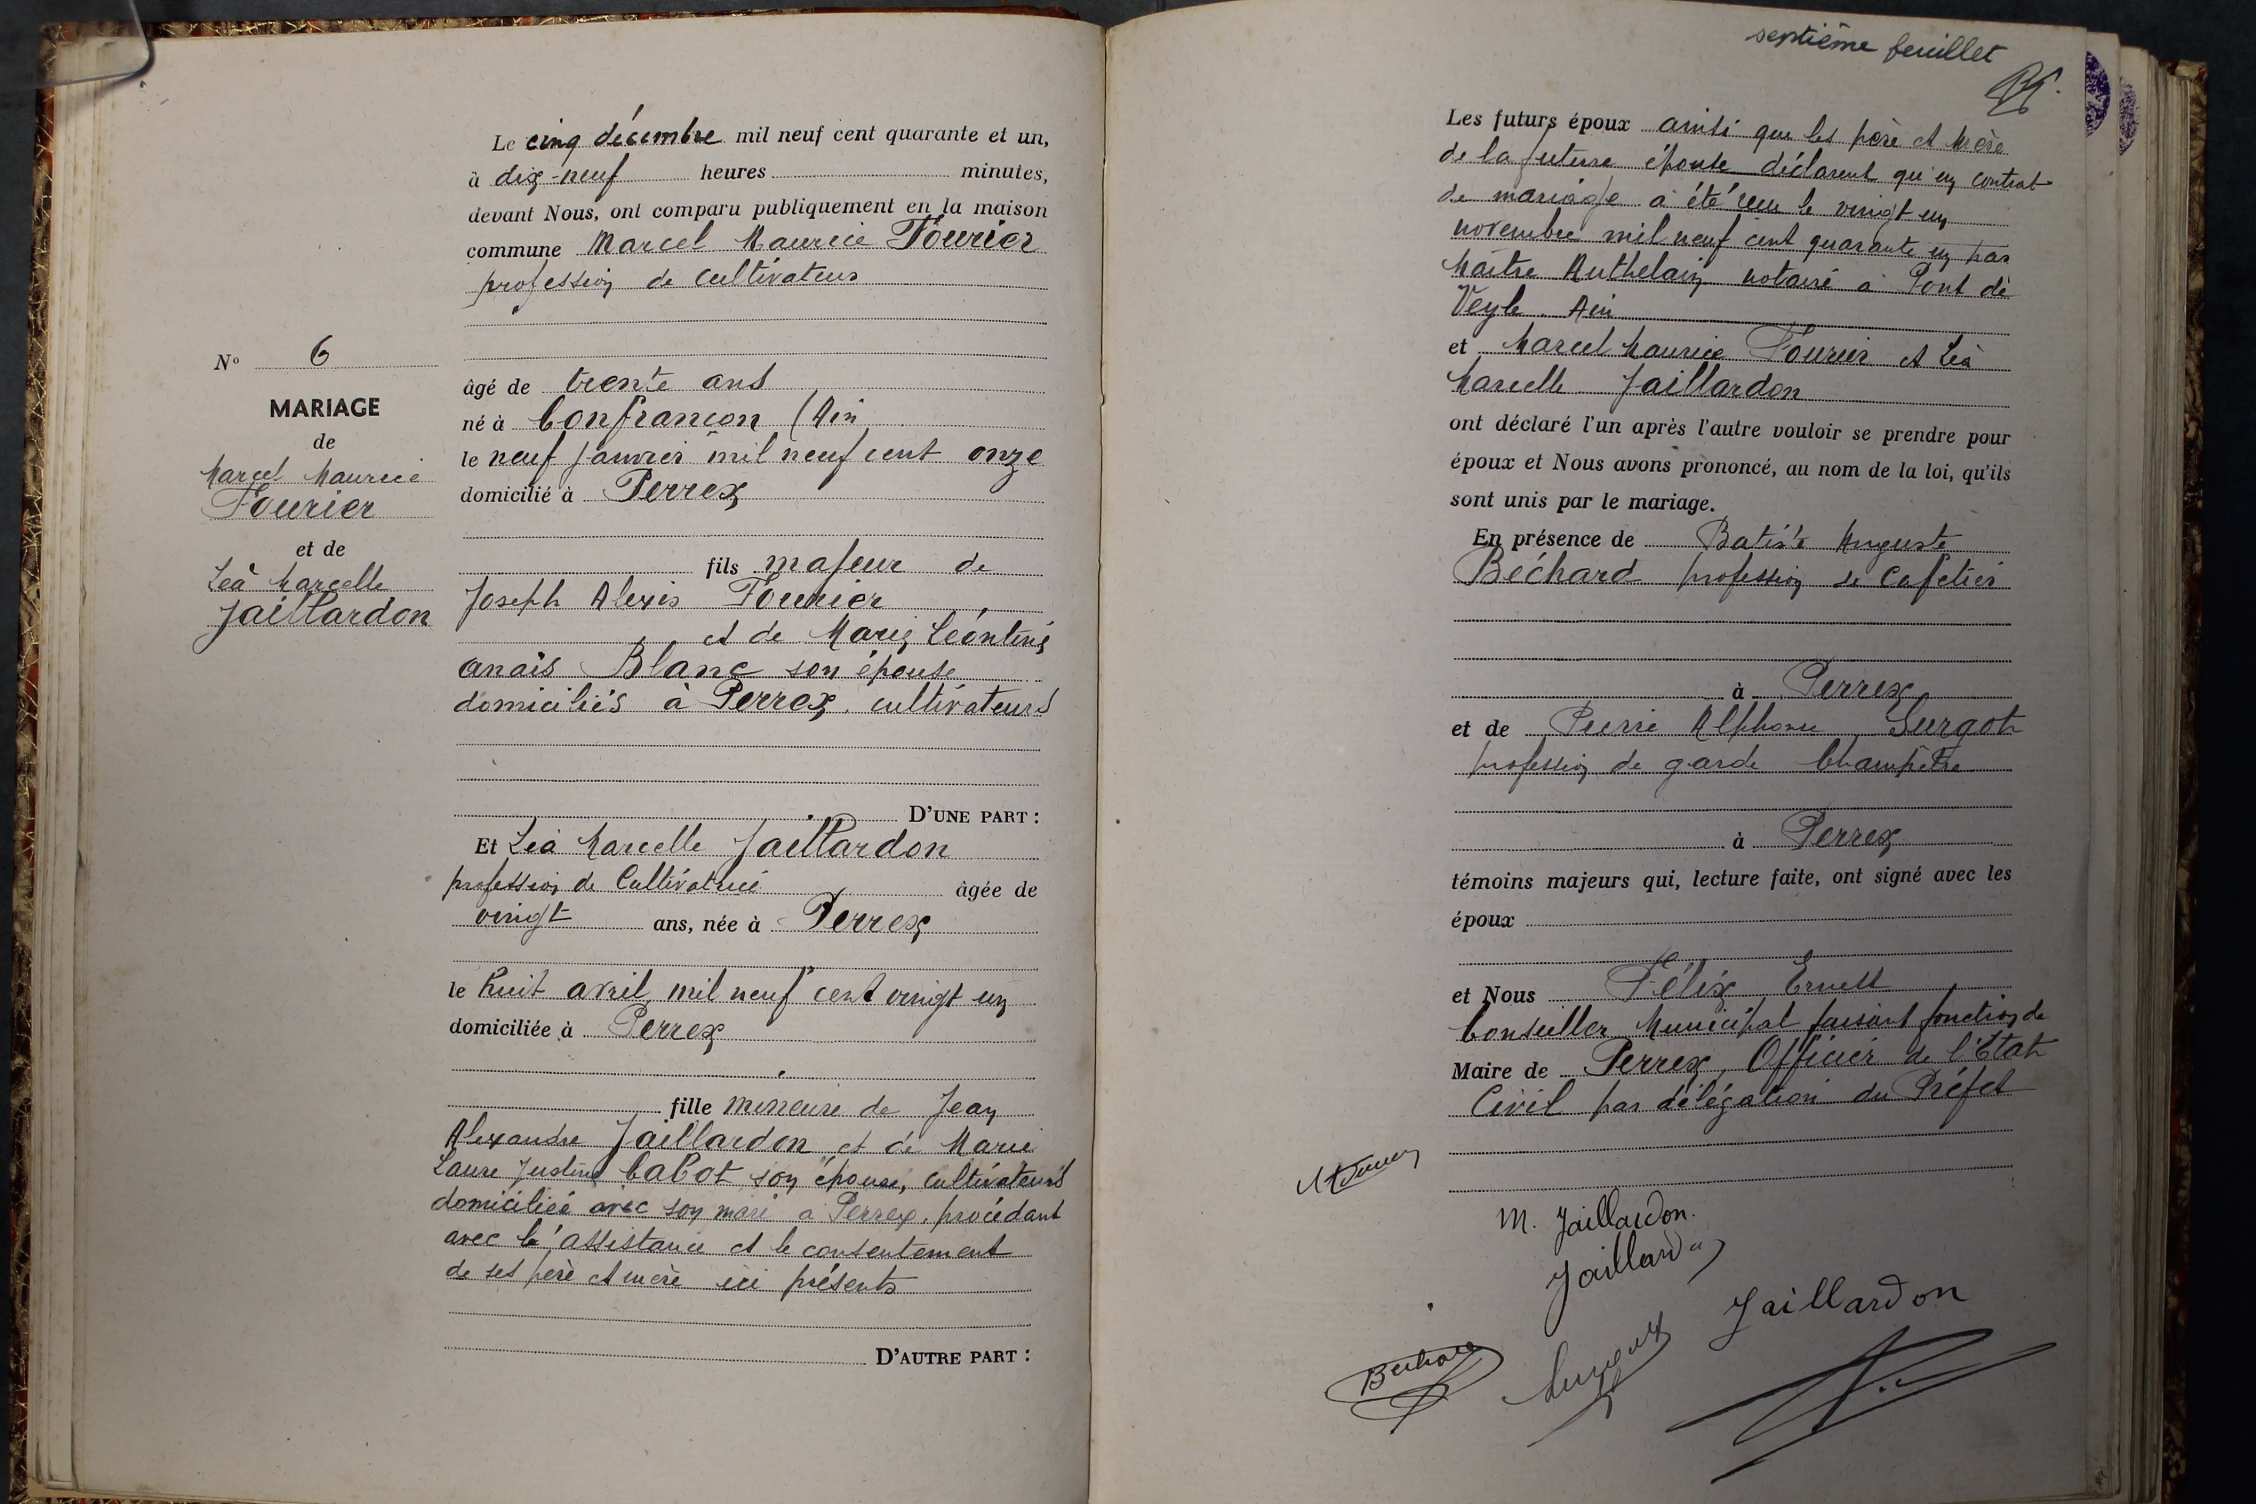 Le cinq décembre mil neuf cent quarante et un,
à dix-neuf heures minutes,
devant Nous, ont comparu publiquement en la maison
commune Marcel Maurice Fourier
profession de cultivateur
N° 6
MARIAGE
de
Marcel Maurice
Fourier
et de
Léa Marcelle
Jaillardon
âgé de trente ans
né à Confrançon (Ain
le neuf Janvier mil neuf cent onze
domicilié à Perrex
fils majeur de
Joseph Alexis Fourier
et de Marie Léontine
anaïs Blanc son épouse
domiciliés à Perrex, cultivateurs
D'UNE PART :
Et Léa Marcelle Jaillardon
profession de Cultivatrice âgée de
vingt ans, née à Perrex
le huit avril mil neuf cent vingt un
domiciliée à Perrex
fille mineure de Jean
Alexandre Jaillardon et de Marie
Laure Justine Cabot son épouse, cultivateurs
domiciliée avec son mari à Perrex, procédant
avec l'assistance et le consentement
de ses père et mère ici présents
D'AUTRE PART :
septième feuillet
Les futurs époux ainsi que les père et mère
de la future épouse déclarent qu'un contrat
de mariage a été reçu le vingt un
novembre mil neuf cent quarante un par
Maître Authelain notaire à Pont de
Veyle. Ain
et Marcel Maurice Fourier et Léa
Marcelle Jaillardon
ont déclaré l'un après l'autre vouloir se prendre pour
époux et Nous avons prononcé, au nom de la loi, qu'ils
sont unis par le mariage.
En présence de Batiste Auguste
Béchard profession de Cafetier
à Perrex
et de Pierre Alphonse Surgot
profession de garde Champêtre
à Perrex
témoins majeurs qui, lecture faite, ont signé avec les
époux
et Nous Félix Ernest
Conseiller Municipal faisant fonction de
Maire de Perrex, Officier de l'Etat
Civil par délégation du Préfet
M. Jaillardon.
Jaillardon
Jaillardon
Béchard